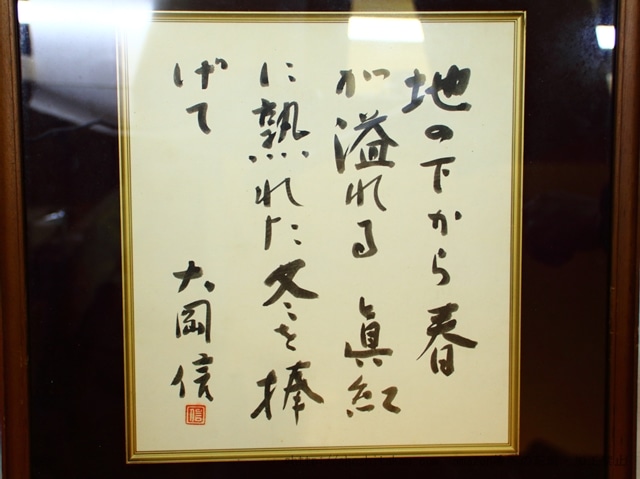 地の下から春
が溢れる 眞紅
に熟れた冬を捧
げて
大岡信